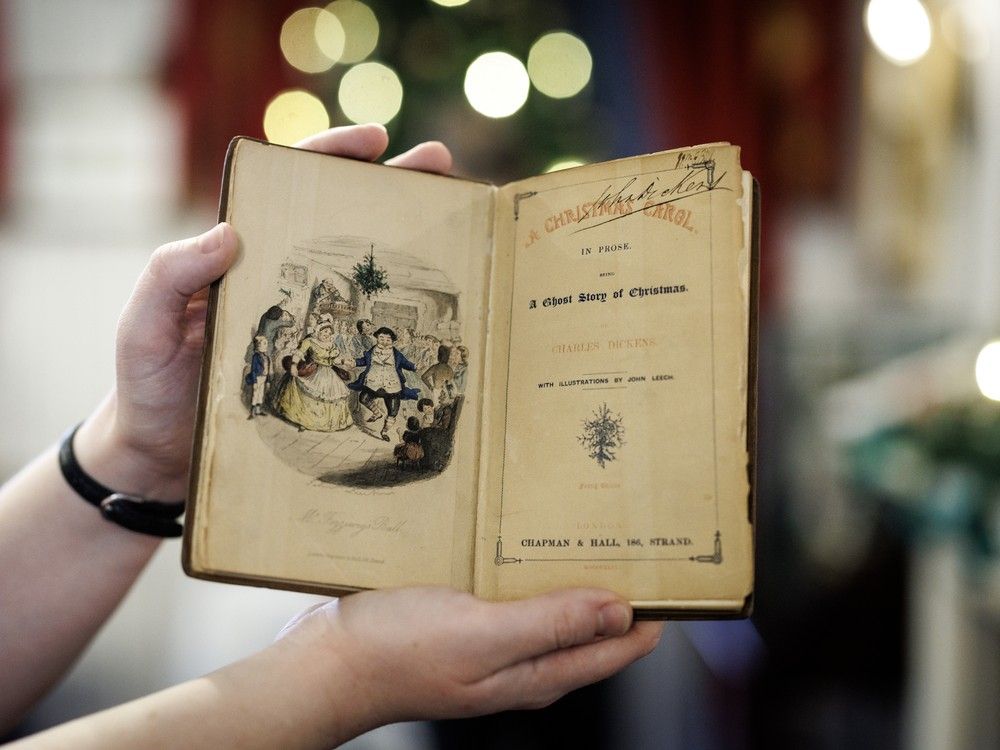 Mr. Fezziwig's Ball.
Dickens
A CHRISTMAS CAROL.
IN PROSE.
BEING
A Ghost Story of Christmas.
CHARLES DICKENS.
WITH ILLUSTRATIONS BY JOHN LEECH.
LONDON:
CHAPMAN & HALL, 186, STRAND.